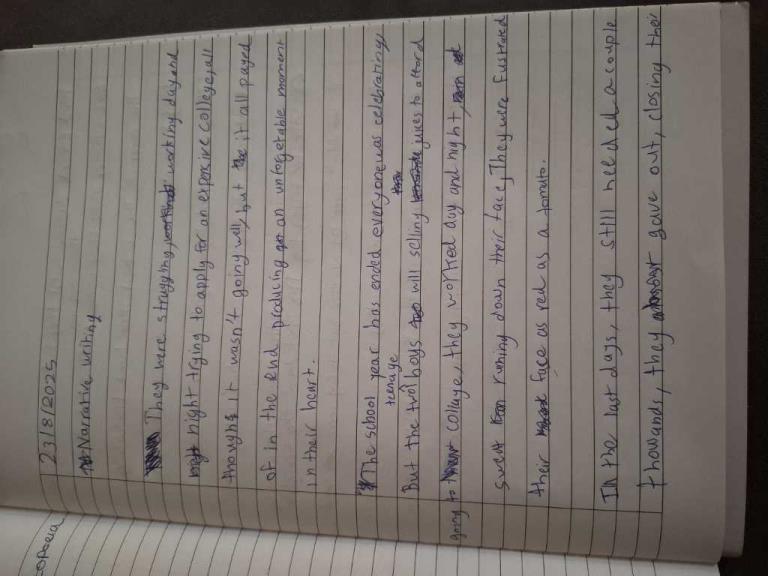 23/8/2025
Narrative writing
They were struggling, working day and
night trying to apply for an expensive college, all
though it wasn't going well, but it all payed
of in the end producing an unforgetable moment
in their heart.
The school year has ended everyone was celebrating
But the two teenage boys will selling juices to afford
going to collage, they worked day and night,
sweat running down their face, They were fustrated
their face as red as a tomato.
In the last days, they still needed a couple
thowands, they almost gave out, closing their